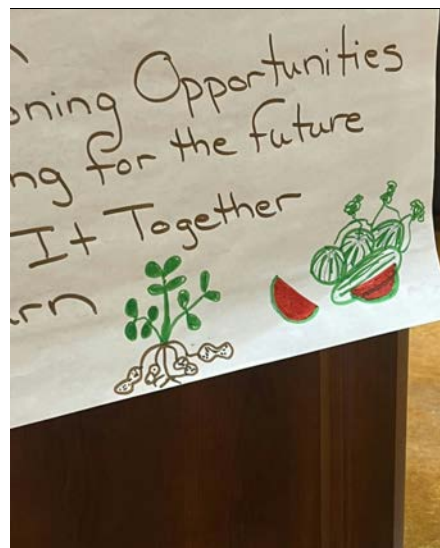 oning Opportunities
ng for the future
It Together
rn